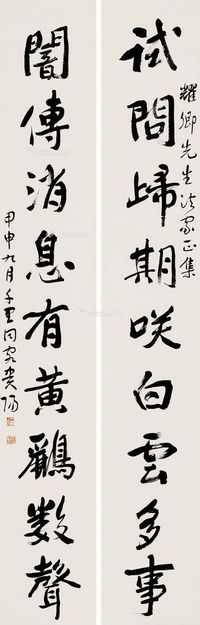 耀卿先生法家正集
試問歸期咲白雲多事
闇傳消息有黃鸝數聲
甲申九月千里同客貴陽